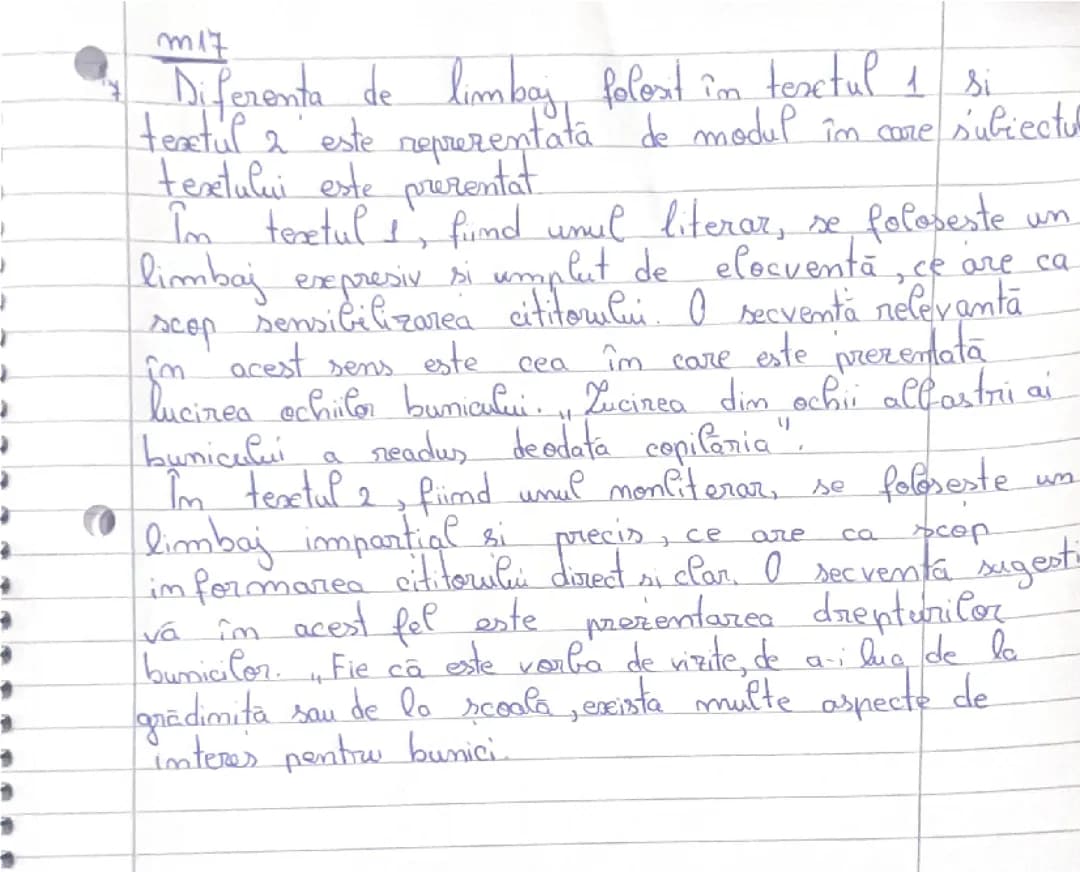 m17
Diferenta de limbaj folosit în textul 1 si
textul 2 este reprezentată de modul în care subiectul
textului este prezentat.
În textul 1, fiind unul literar, se foloseste un
limbaj expresiv si umplut de elocventă, ce are ca
scop sensibilizarea cititorului. O secventă relevantă
în acest sens este cea în care este prezentată
lucirea ochiilor bunicului. „Lucirea din ochii albastri ai
bunicului a readus deodată copilăria".
În textul 2, fiind unul nonliterar, se foloseste un
limbaj impartial si precis, ce are ca scop
informarea cititorului direct si clar. O secventă sugesti
vă în acest fel este prezentarea drepturilor
bunicilor. „Fie că este vorba de vizite, de a-i lua de la
grădinită sau de la scoală, exista multe aspecte de
interes pentru bunici.